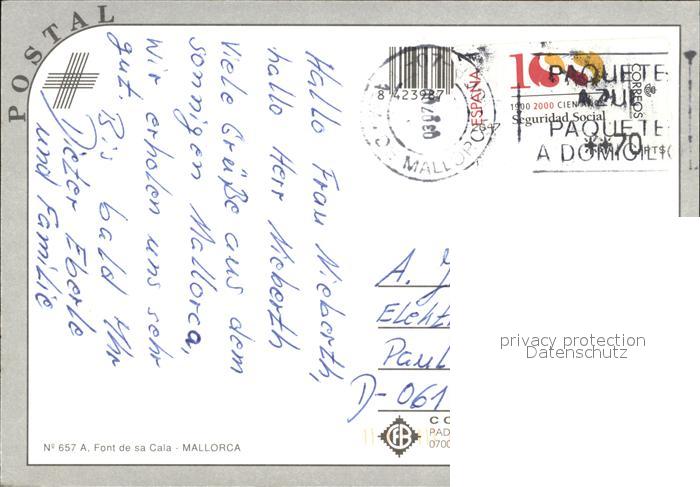 POSTAL
Hallo Frau Nieberth,
hallo Herr Nieberth
Viele Grüße aus dem
sonnigen Mallorca,
wir erholen uns sehr
gut. Bis bald Ihr
Dieter Eberle
und Familie
8 423987
MALLORCA
ESPAÑA
2647
1900 2000 CIEN AÑOS
Seguridad Social
CORREOS
PAQUETE
AZUL
PAQUETE
A DOMICILIO
**70 PTS
A.
Elekt
Paul
D-061
privacy protection
Datenschutz
CO
PAD
0700
Nº 657 A, Font de sa Cala - MALLORCA